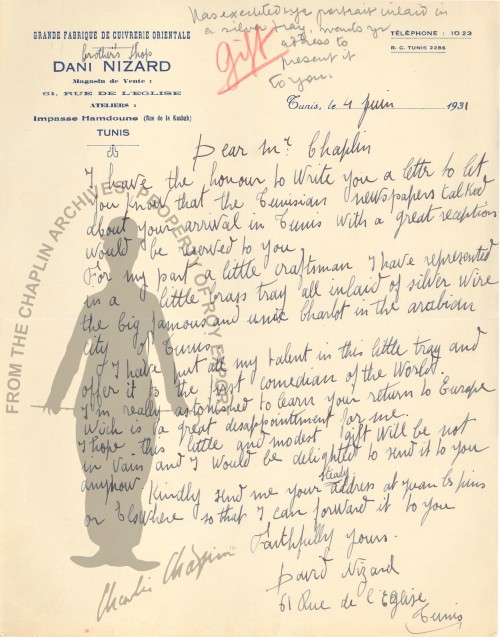 Has executed yr portrait inlaid in
a silver tray, wants yr
address to
present it
to you.
Gift
GRANDE FABRIQUE DE CUIVRERIE ORIENTALE
brother's shops
DANI NIZARD
Magasin de Vente :
61, RUE DE L'EGLISE
ATELIERS :
Impasse Hamdoune (Rue de la Kasbah)
TUNIS
TÉLÉPHONE : 10 23
R. C. TUNIS 2286
Tunis, le 4 juin 1931
Dear Mr. Chaplin
I have the honour to write you a letter to let
you know that the Tunisian newspapers talked
about your arrival in Tunis with a great reception
would be reserved to you.
For my part a little craftsman, I have represented
in a little brass tray all inlaid of silver wire
the big famous and unic Charlot in the arabian
city of Tunis.
I have put all my talent in this little tray and
offer it to the first comedian of the World.
I'm really astonished to learn your return to Europe
wich is a great desappointment for me.
I hope this little and modest gift will be not
in vain and I would be delighted to send it to you
anyhow. Kindly send me your steady address at Juan les pins
or Elswhere so that I can forward it to you
Faithfully yours.
David Nizard
61 Rue de l'Eglise
Tunis
FROM THE CHAPLIN ARCHIVES, PROPERTY OF ROY EXPORT
Charlie Chaplin